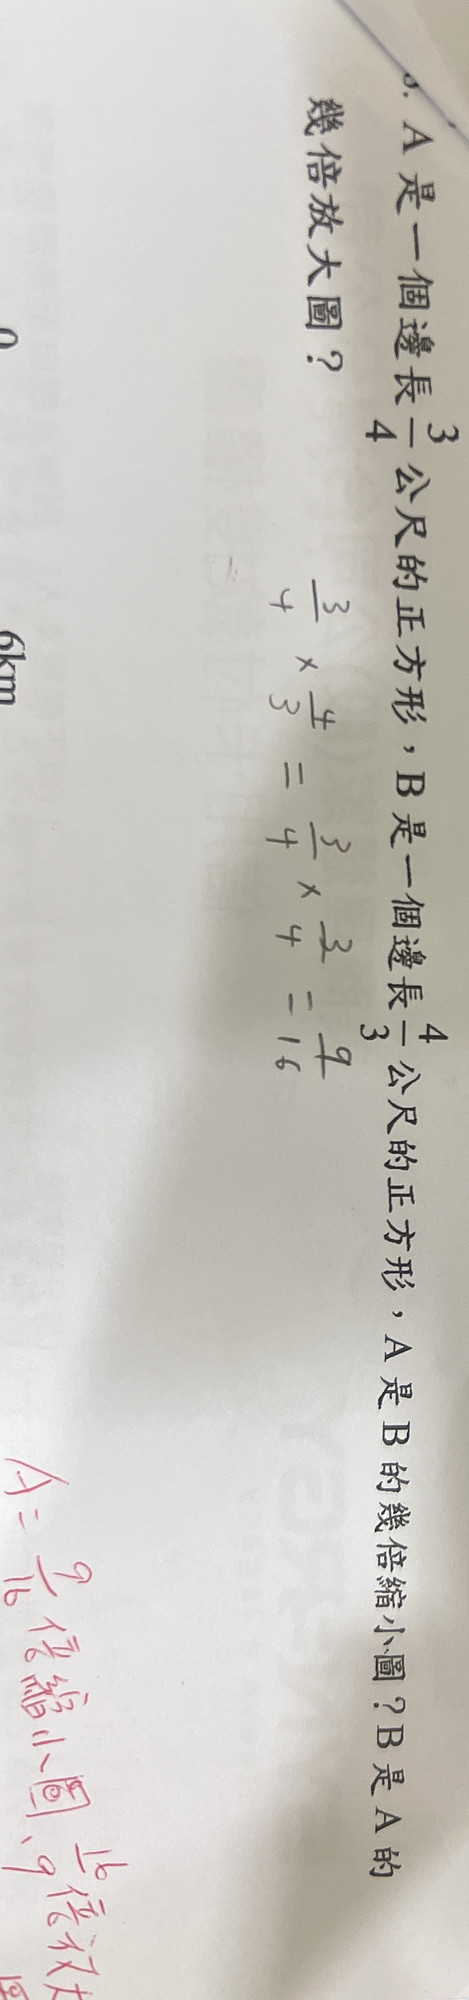 A 是一個邊長 3/4 公尺的正方形，B 是一個邊長 4/3 公尺的正方形，A 是 B 的幾倍縮小圖？B 是 A 的
幾倍放大圖？
3/4 × 4/3 = 3/4 × 3/4 = 9/16
A = 9/16 倍縮小圖、16/9 倍放大
0 6km